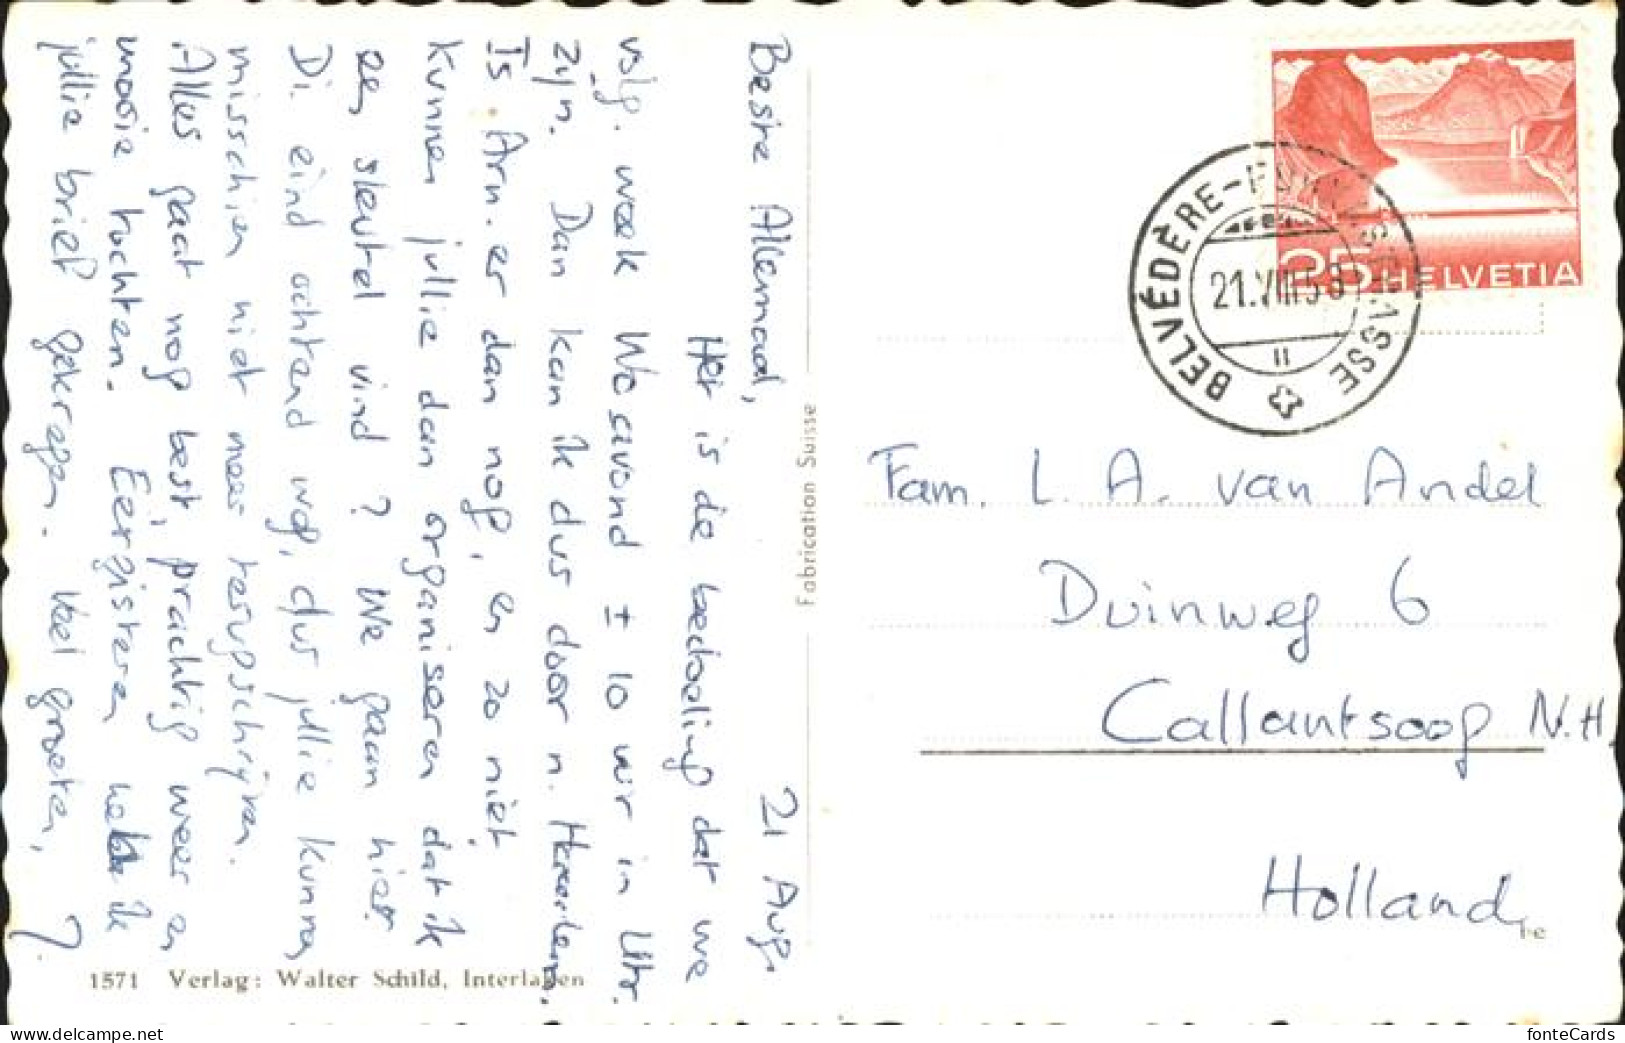 21 Aug.
Beste Allemaal,
Het is de bedoeling dat we
volg. week Woavond ± 10 uur in Utr.
zyn. Dan kan ik dus door n. Haarlem.
Is Arn. er dan nog, en zo niet,
kunnen jullie dan organiseren dat ik
een sleutel vind? We gaan hier
Di. eind ochtend weg, dus jullie kunnen
misschien niet meer terugschrijven.
Alles gaat nog best, prachtig weer en
mooie tochten. Eergisteren heb ik
jullie brief gekregen. Veel groeten,
Fabrication Suisse
1571 Verlag: Walter Schild, Interlaken
HELVETIA
25
BELVÉDÈRE-FURKASTRASSE
21.VIII.58
Fam. L. A. van Andel
Duinweg 6
Callantsoog N.H.
Holland
fonteCards
https://www.delcampe.net